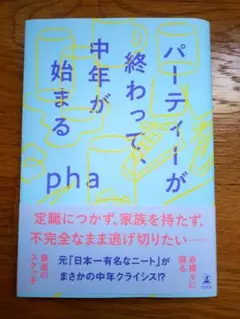 パーティーが
終わって、
中年が
始まる
pha
定職につかず、家族を持たず、
不完全なまま逃げ切りたい――
元「日本一有名なニート」が
まさかの中年クライシス!?
赤裸々に綴る
衰退のスケッチ
幻冬舎